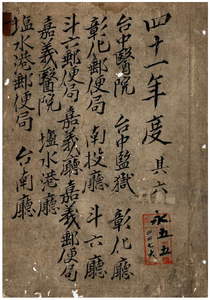 四十一年度 其六
台中醫院 台中監獄 彰化廳
彰化郵便局 南投廳 斗六廳
斗六郵便局 嘉義廳 嘉義郵便局
嘉義醫院 塩水港廳
塩水港郵便局 台南廳
永五五